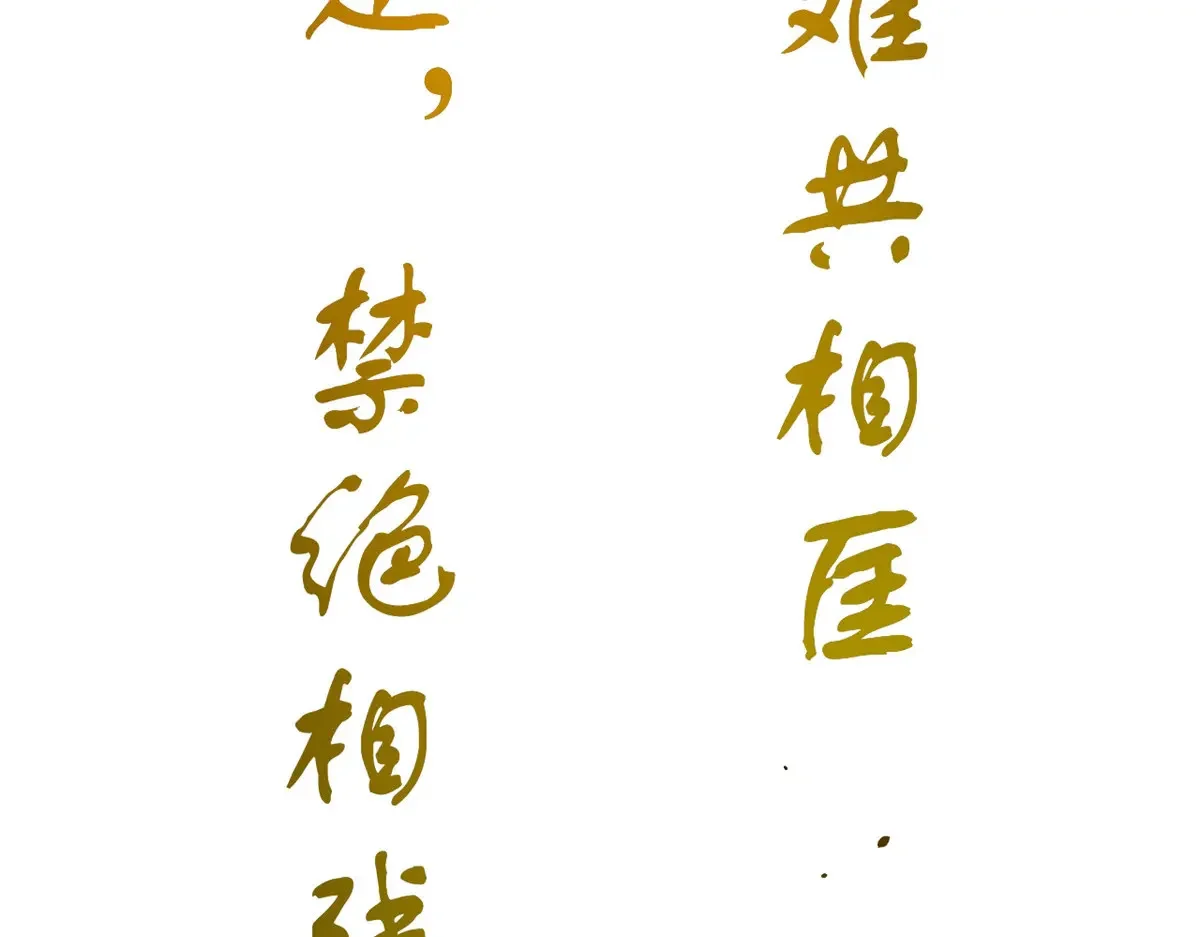 难共相匡
，禁绝相残